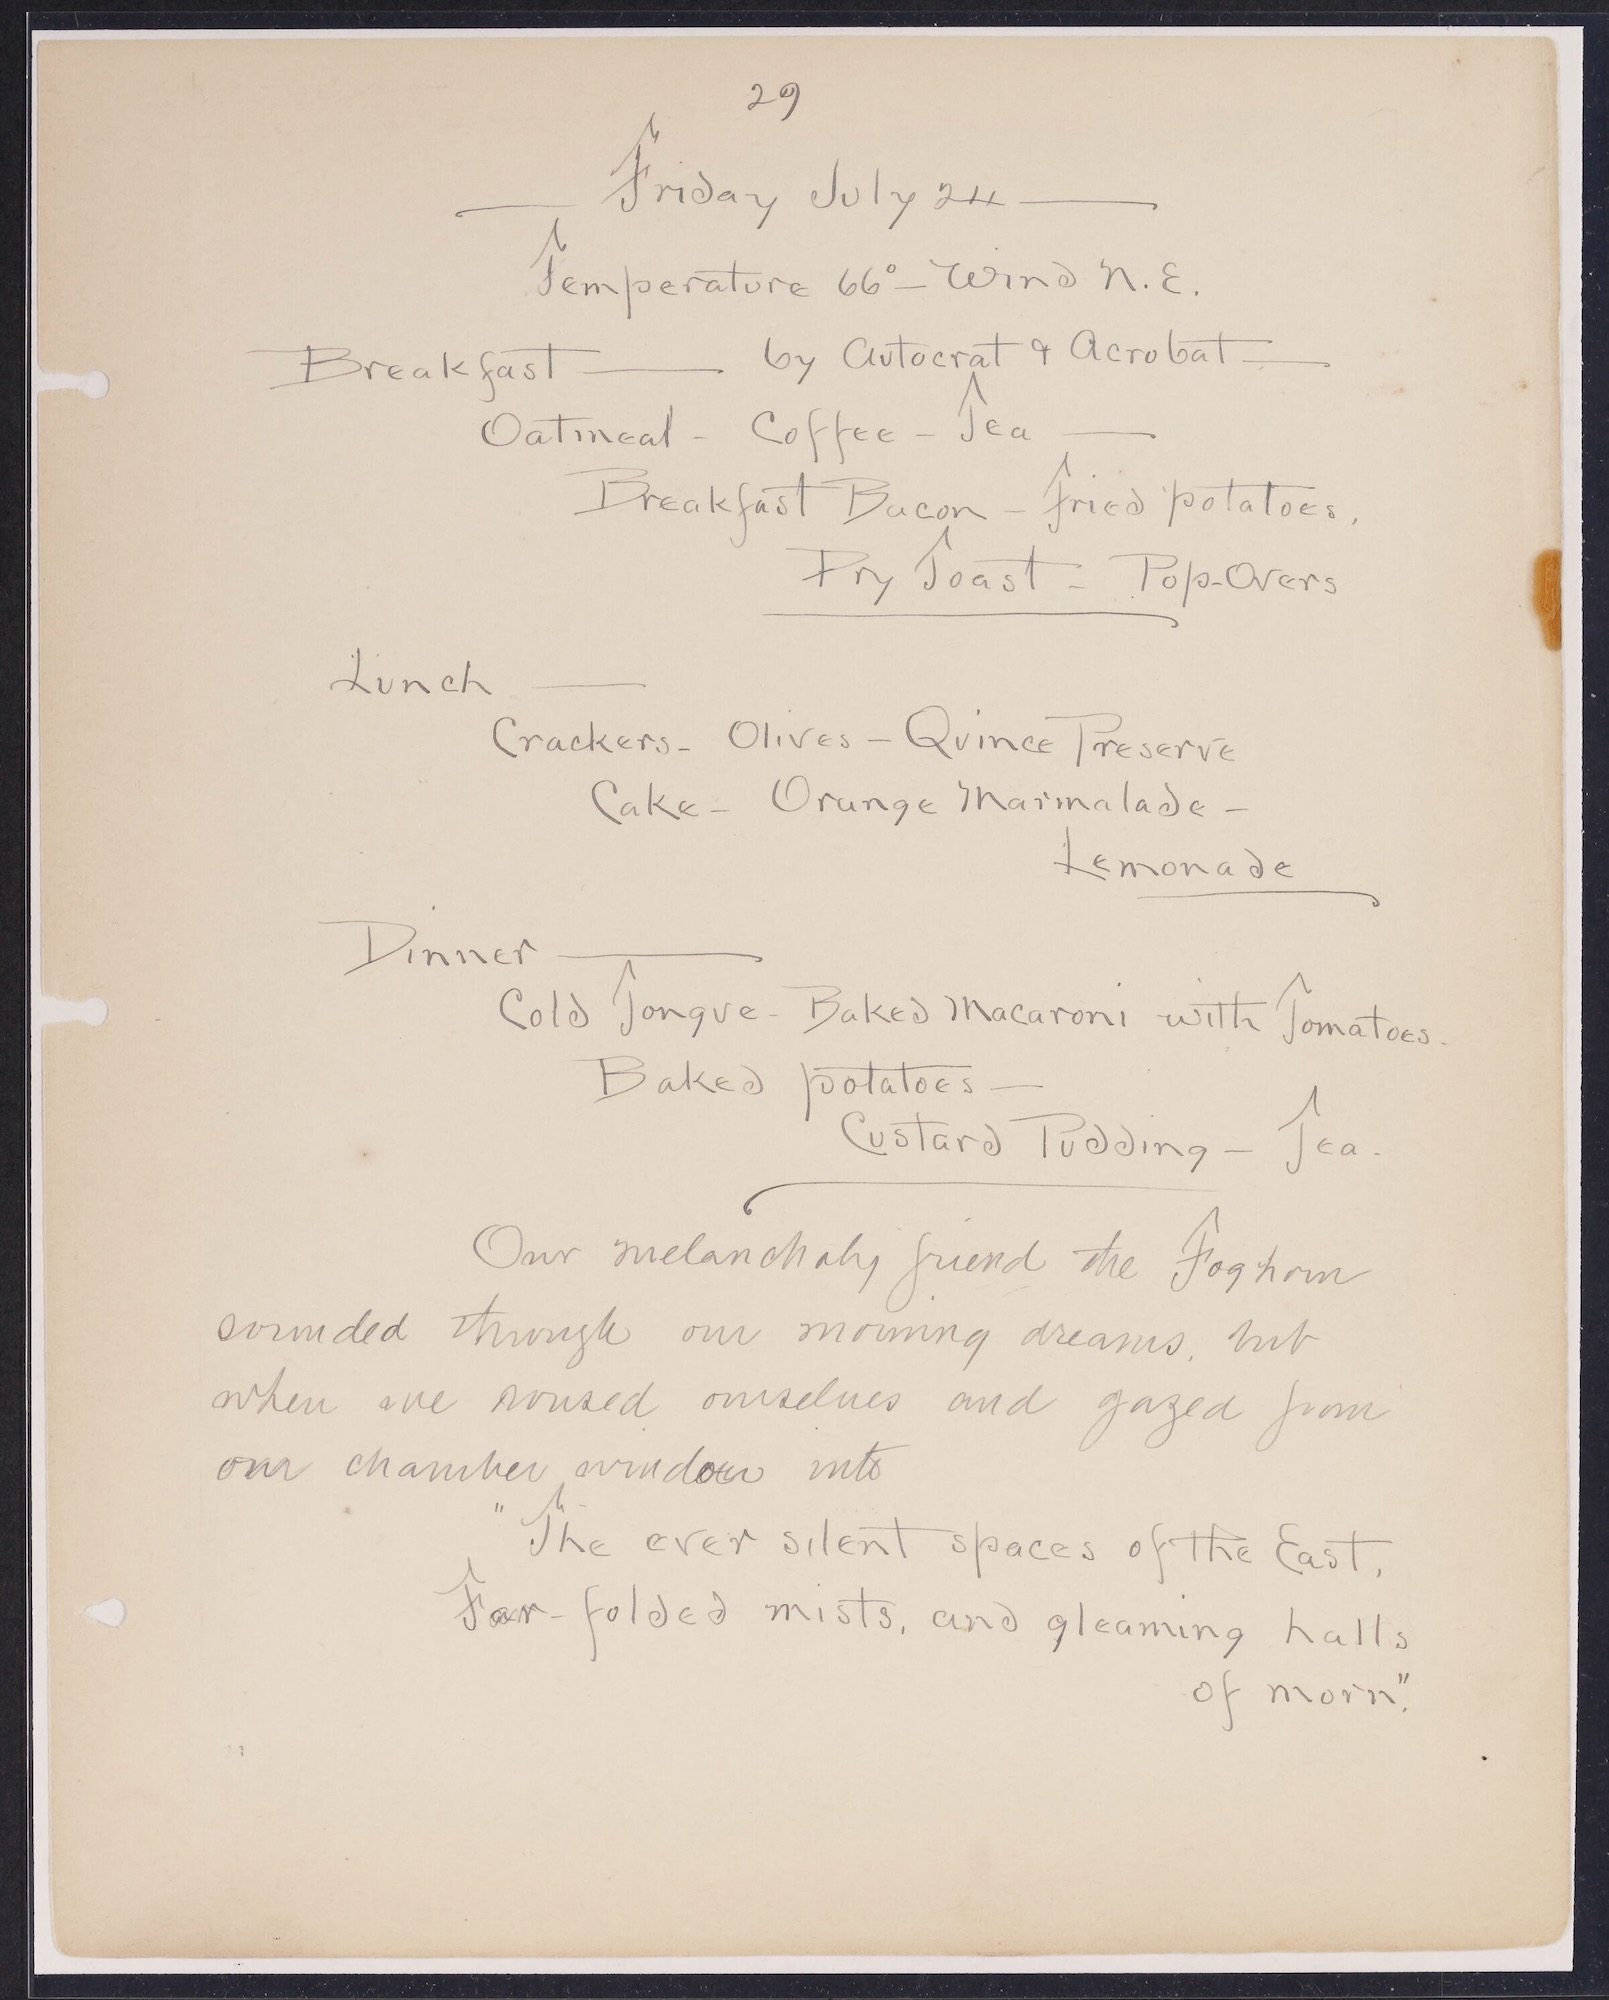 29
Friday July 24
Temperature 66° - Wind N.E.
Breakfast — by Autocrat & Acrobat —
Oatmeal - Coffee - Tea —
Breakfast Bacon - Fried potatoes.
Dry Toast = Pop-Overs
Lunch —
Crackers - Olives - Quince Preserve
Cake - Orange Marmalade -
Lemonade
Dinner —
Cold Tongue - Baked Macaroni with Tomatoes.
Baked potatoes —
Custard Pudding - Tea.
Our melancholy friend the Foghorn
sounded through our morning dreams, but
when we roused ourselves and gazed from
our chamber window into
"The ever silent spaces of the East,
Far-folded mists, and gleaming halls
of morn".